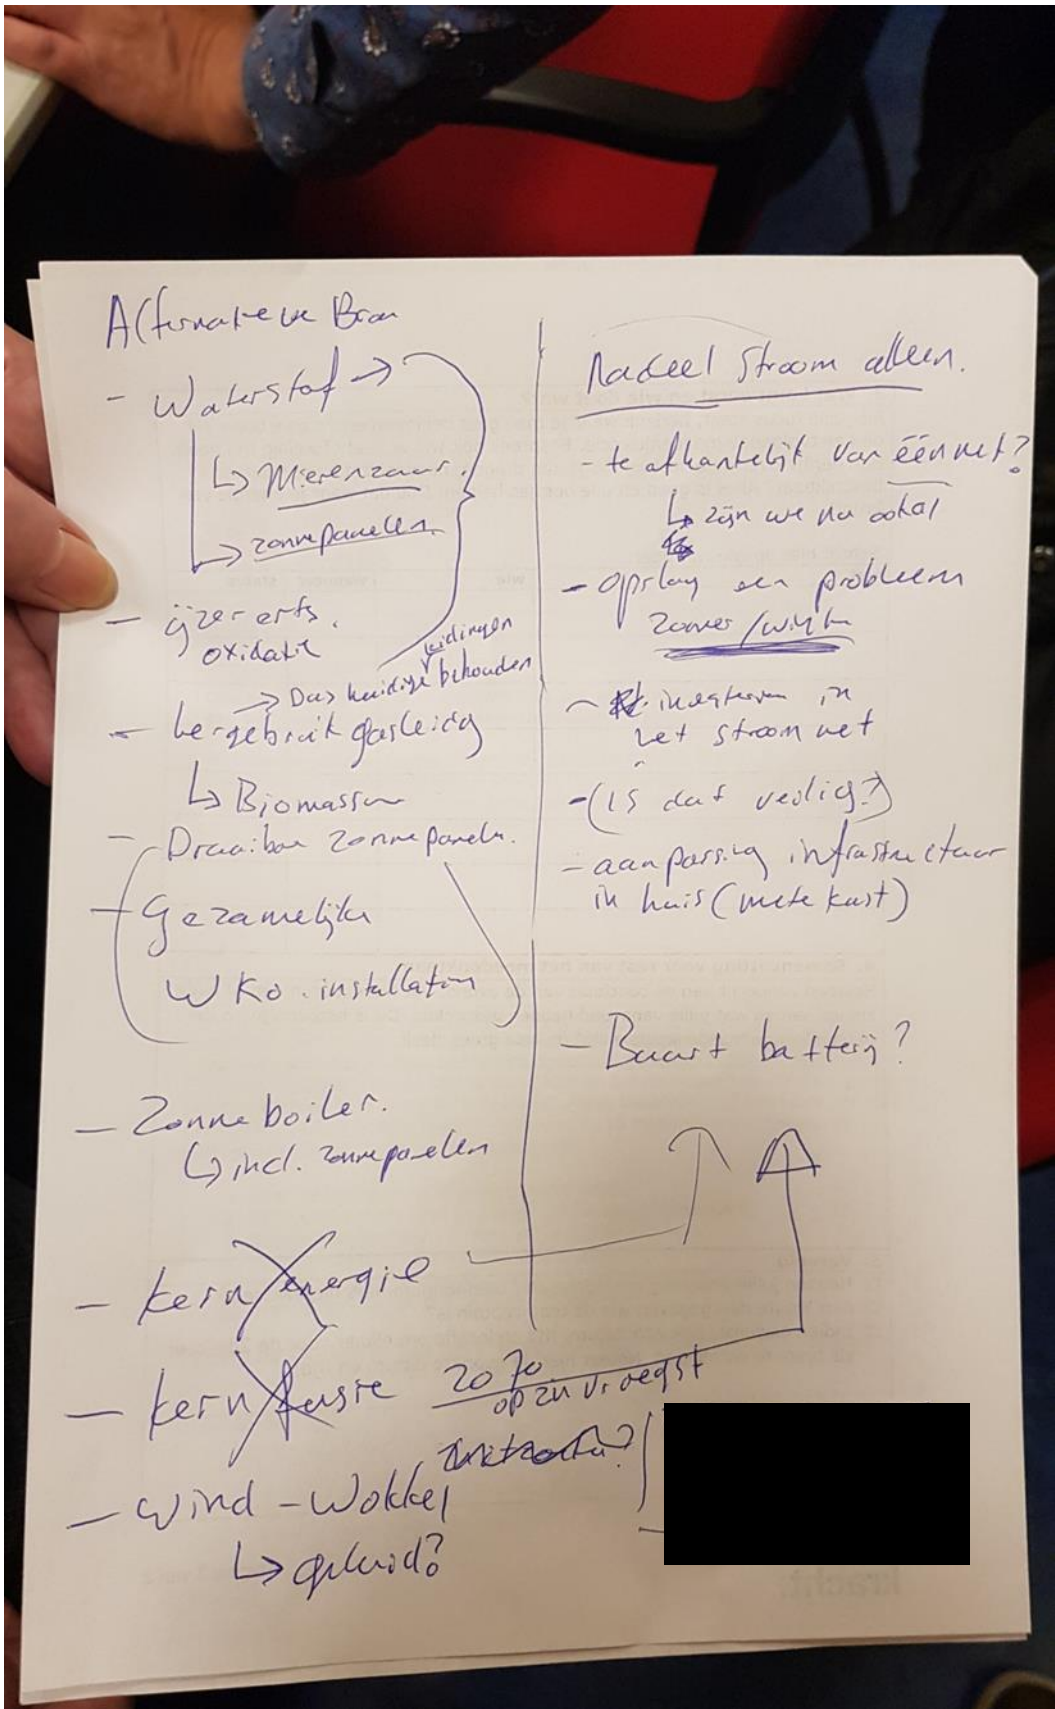 Alternatieve Bron
- Waterstof →
↳ Mierenzuur.
↳ zonnepanelen.
- ijzererts.
oxidatie
→ Das huidige leidingen behouden
- hergebruik gasleidig
↳ Biomassa
- Draaibare zonnepanelen.
- Gezamelijke
WKO. installaties
- Zonneboiler.
↳ incl. zonnepanelen
- kern energie
- kern fusie 2070
op zin vroegst
- Wind - Wokkel
↳ geluid?
Nadeel stroom alleen.
- te afhankelijk van één net?
↳ zijn we nu ookal
- opslag een probleem
zomer/winter
- integreren in
het stroomnet
- (is dat veilig?)
- aanpassing infrastructuur
in huis (meterkast)
- Buurt batterij?